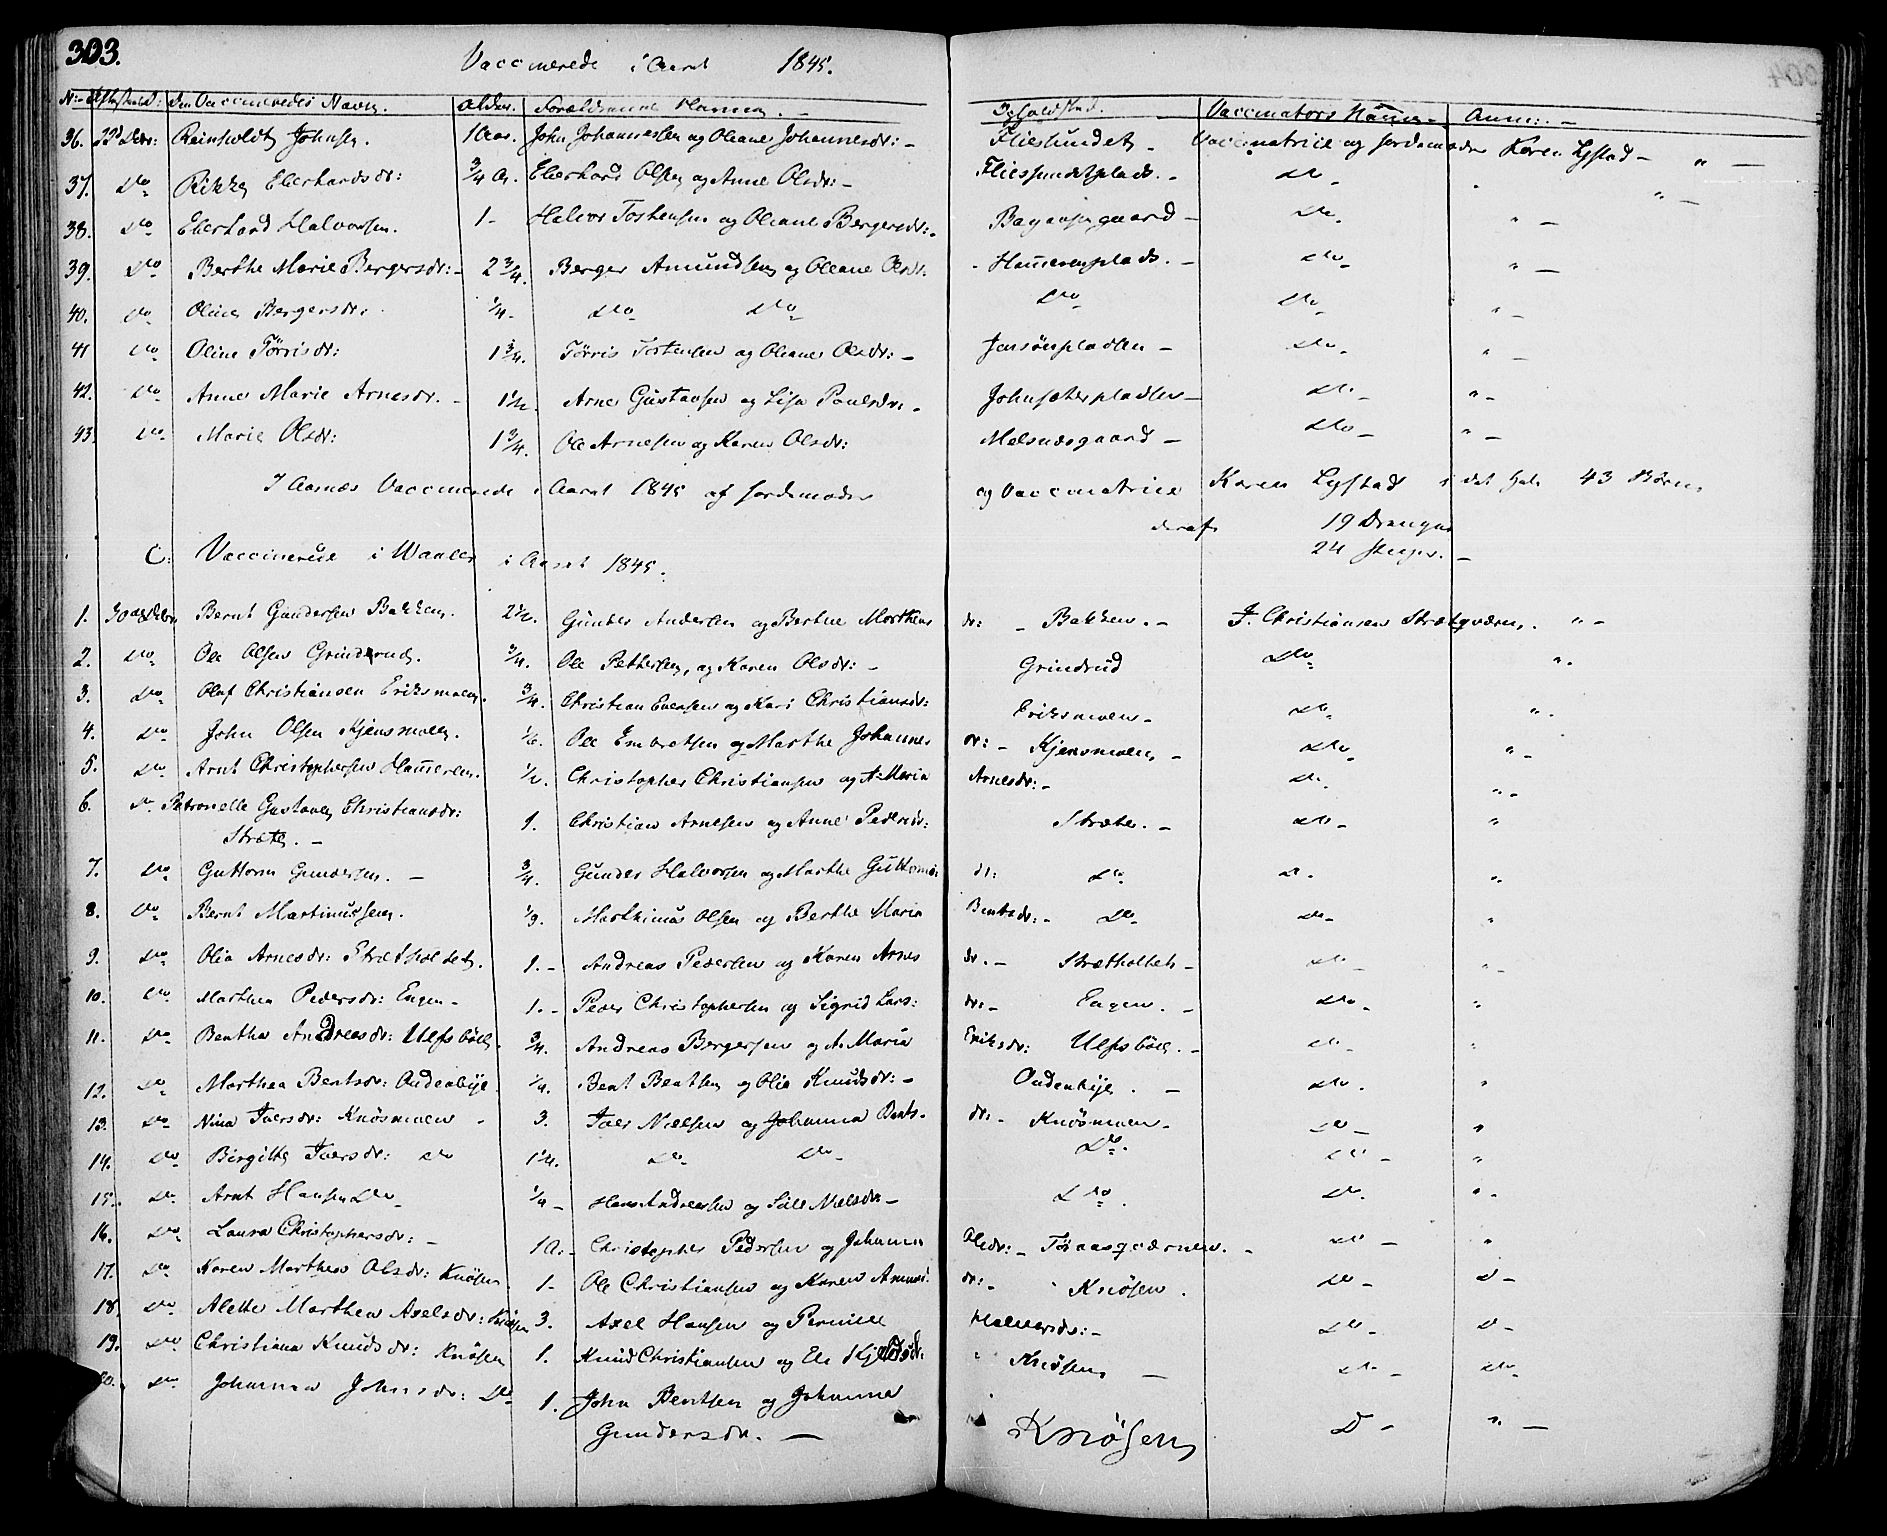 303.
Vaccinerede i Aaret 1845.
No Den Vaccineredes Navn. Alder. Forældrenes Navne. Opholdsted. Vaccinators Navn. Anm:
36. 22d Dcbr: Reinholdt Johnsen. 1 Aar. John Johannessen og Oleane Johannesdr: - Fliesundet - Vaccinatrice og Jordemoder Karen Lystad - " -
37. Do Rikke Eberhardsdr: 3/4 A. Eberhard Olsen og Anne Olsdr: - Fliesundetplads. - Do - " -
38. Do Eberhard Halvorsen. 1 - Halvor Tostensen og Oleane Bergersdr: - gaard - Do - " -
39. Do Berthe Marie Bergersdr: - 2 3/4. Berger Amundsen og Oleane Olsdr. - plads. - Do - " -
40. Do Oline Bergersdr. 1/4 - Do Do Do Do " -
41 Do Oline Törrisdr: 1 3/4. Törris Tostensen og Oleane Olsdr: - pladsen - Do - " -
42. Do Anne Marie Arnesdr. - 1 1/2. Arne Gustavsen og Lisa Paulsdr. - Johnsæterpladsen - Do - " -
43. Do Marie Olsdr: 1 3/4. Ole Arnesen og Karen Olsdr: Melsnæsgaard - Do - " -
I Aasnæs Vaccinerede i Aaret 1845 af Jordemoder og Vaccinatrice Karen Lystad i det Hele 43 Börn,
deraf 19 Drenge
24 Piger. -
C: Vaccinerede i Waaler i Aaret 1845.
1. 30 Bernt Gundersen Bakken. 2 1/2. Gunder Andersen og Berthe Marthens dr: - Bakken. - J. Christiansen Strætqværn. " -
2. Do Ole Olsen Grinderud. 3/4. Ole Pettersen, og Karen Olsdr: - Grindrud Do " -
3. Do Olaf Christiansen Eriksmoen. 3/4. Christian Evensen og Kari Christiansdr: Eriksmoen - Do " -
4. Do John Olsen Kjensmoen. Ole Embretsen og Marthe Johannes dr: - Kjensmoen, - Do " -
5. Do Arnt Christophersen Hammeren. 1/2. Christopher Christiansen og A: Maria Arnesdr: - Do " -
6. Do Petronelle Gustava Christiansdr:
Stræte. - 1. Christian Arnesen og Anne Pedersdr: Stræte. - Do - "
7. Do Guttorm Gundersen. - 3/4. Gunder Halvorsen og Marthe Guttorms dr: Do Do "
8. Do Bernt Martinussen. 1/3. Marthinus Olsen og Berthe Maria Bentsdr: - Do Do - "
9. Do Olia Arnesdr: Strætholtet. 1. - Andreas Pedersen og Karen Arnes dr. - Strætholtet - Do - " -
10. Do Marthea Pedersdr: Engen - 1. - Peder Christophersen og Sigrid Lars: dr: - Engen. - Do - "
11. Do Benthe Andreasdr: Ulfsböll. 3/4. Andreas Bergersen og A. Maria Eriksdr: Ulfsböll. - Do - "
12. Do Marthea Bentsdr: Oudenbye. 1/4. Bent Bentsen og Olia Knudsdr: - Oudenbye. - Do. "
13. Do Nina Iversdr: Knösmoen - 3. Iver Nielsen og Johanna Bents. dr: - Knösmoen - Do - "
14. Do Birgitte Iversdr: Do 1 1/4. Do Do Do. Do - "
15. Do Arnt Hansen Do 1/4 - Hans Andreassen og Nielsdr - Do. Do. " -
16. Do Laura Christophersdr: - 1 A. - Christopher Pedersen og Johanna Olsdr: - - Do - "
17. Do Karen Marthea Olsdr: Knösen 1 - Ole Christiansen og Karen Amund. dr: - Knösen. Do - D -
18. Do Alette Marthea Axelsdr: Knösen 3. Axel Hansen og Pernille Do - D -
19. Do Christiana Knudsdr: Knösen 1. Knud Christiansen og Eli Kjeldsdr: Knösen, - Do - Do -
20. Do Johanna Johnsdr: Do 1. John Bentsen og Johanna
Gundersdr. - Knösen D - " -